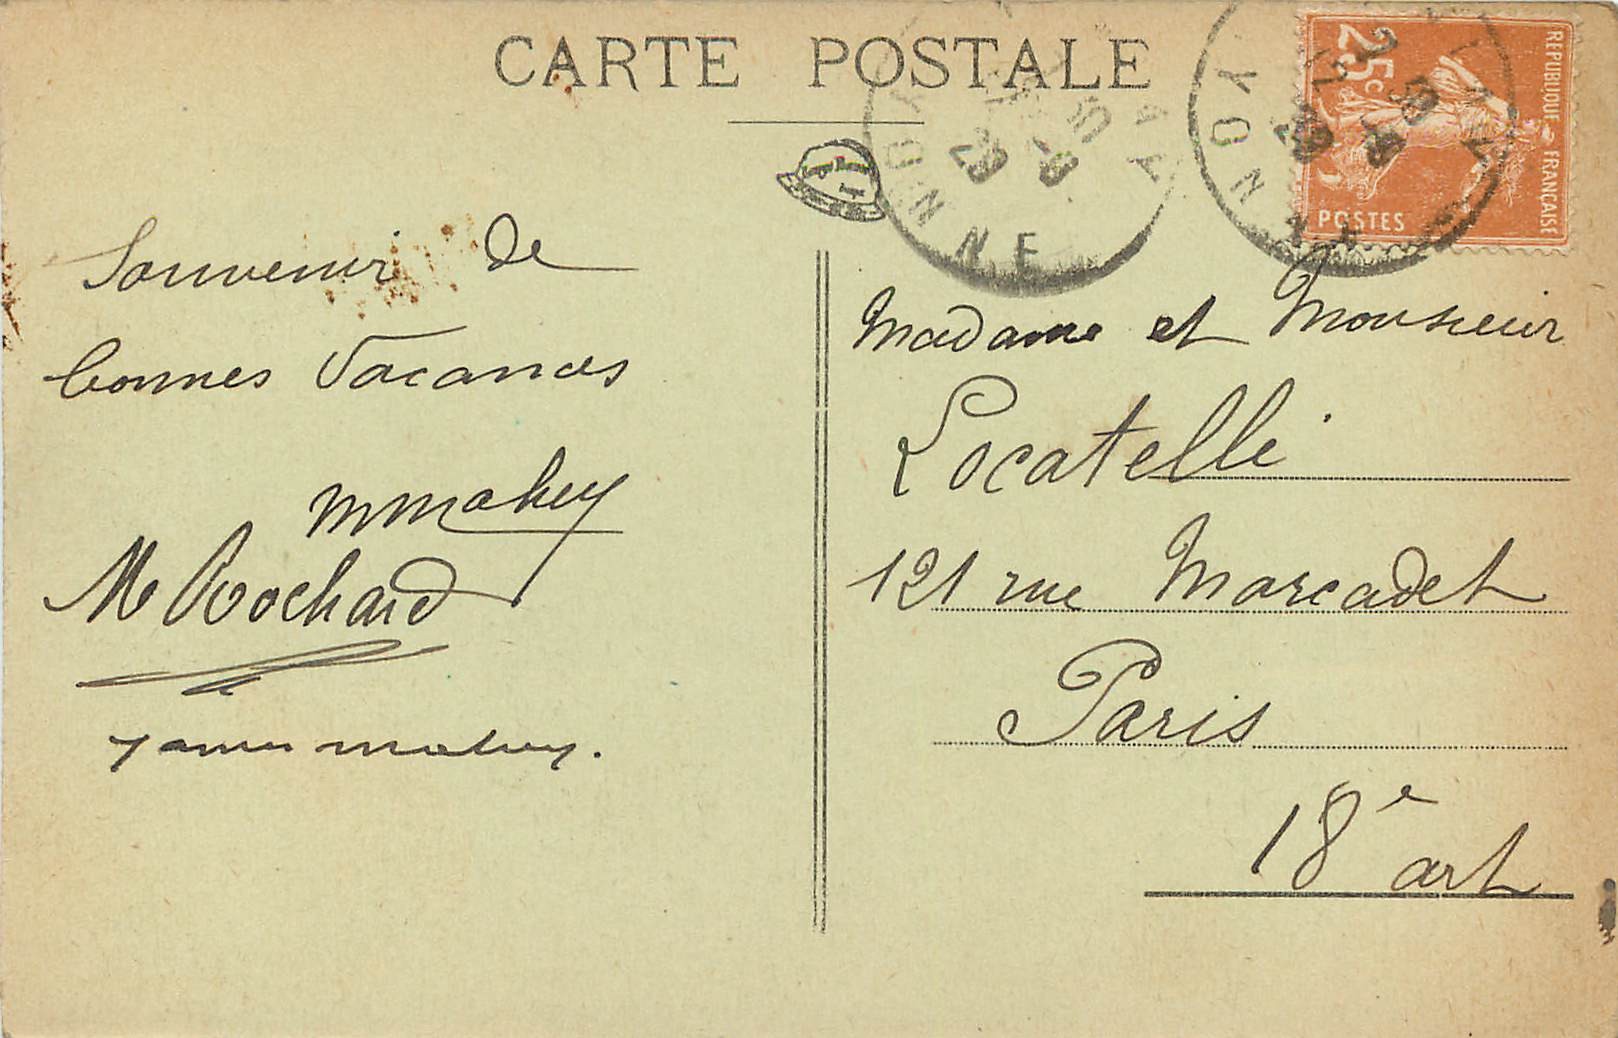 CARTE POSTALE
RÉPUBLIQUE FRANÇAISE
25c
POSTES
YONNE
YONNE
Souvenir de
bonnes Vacances
M Mahey
M Rochard
Mahey.
Madame et Monsieur
Locatelli
121 rue Marcadet
Paris
18e art